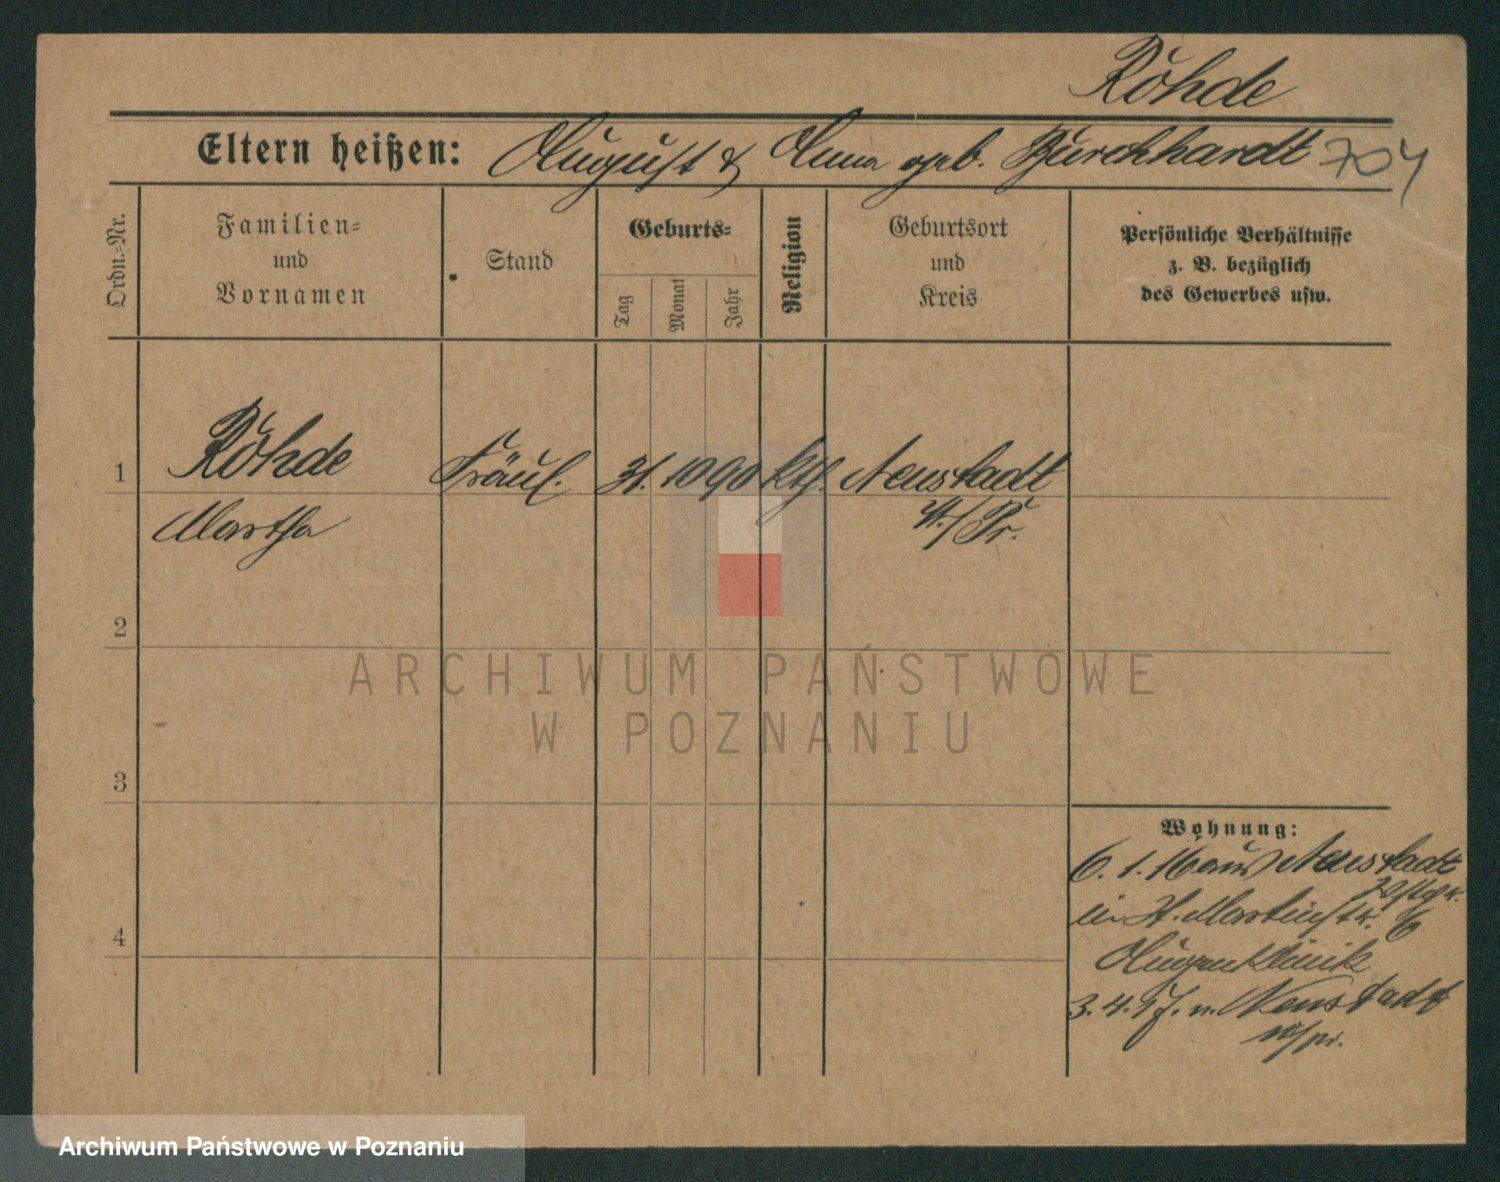 Röhde
Eltern heißen: August & Anna geb. Burchhardt 704
Ordn.-Nr.
Familien-
und
Vornamen
Stand
Geburts-
Tag
Monat
Jahr
Religion
Geburtsort
und
Kreis
Persönliche Verhältnisse
z. B. bezüglich
des Gewerbes usw.
1 Röhde Fräul. 31. 10 90 kth. Neustadt
Martha W./Pr.
2
ARCHIWUM PAŃSTWOWE
W POZNANIU
3
Wohnung:
6. 1. 16 aus Neustadt
in St. Martinstr. 6
4
Augenklinik
3. 4. 17. n. Neustadt
w/pr.
Archiwum Państwowe w Poznaniu